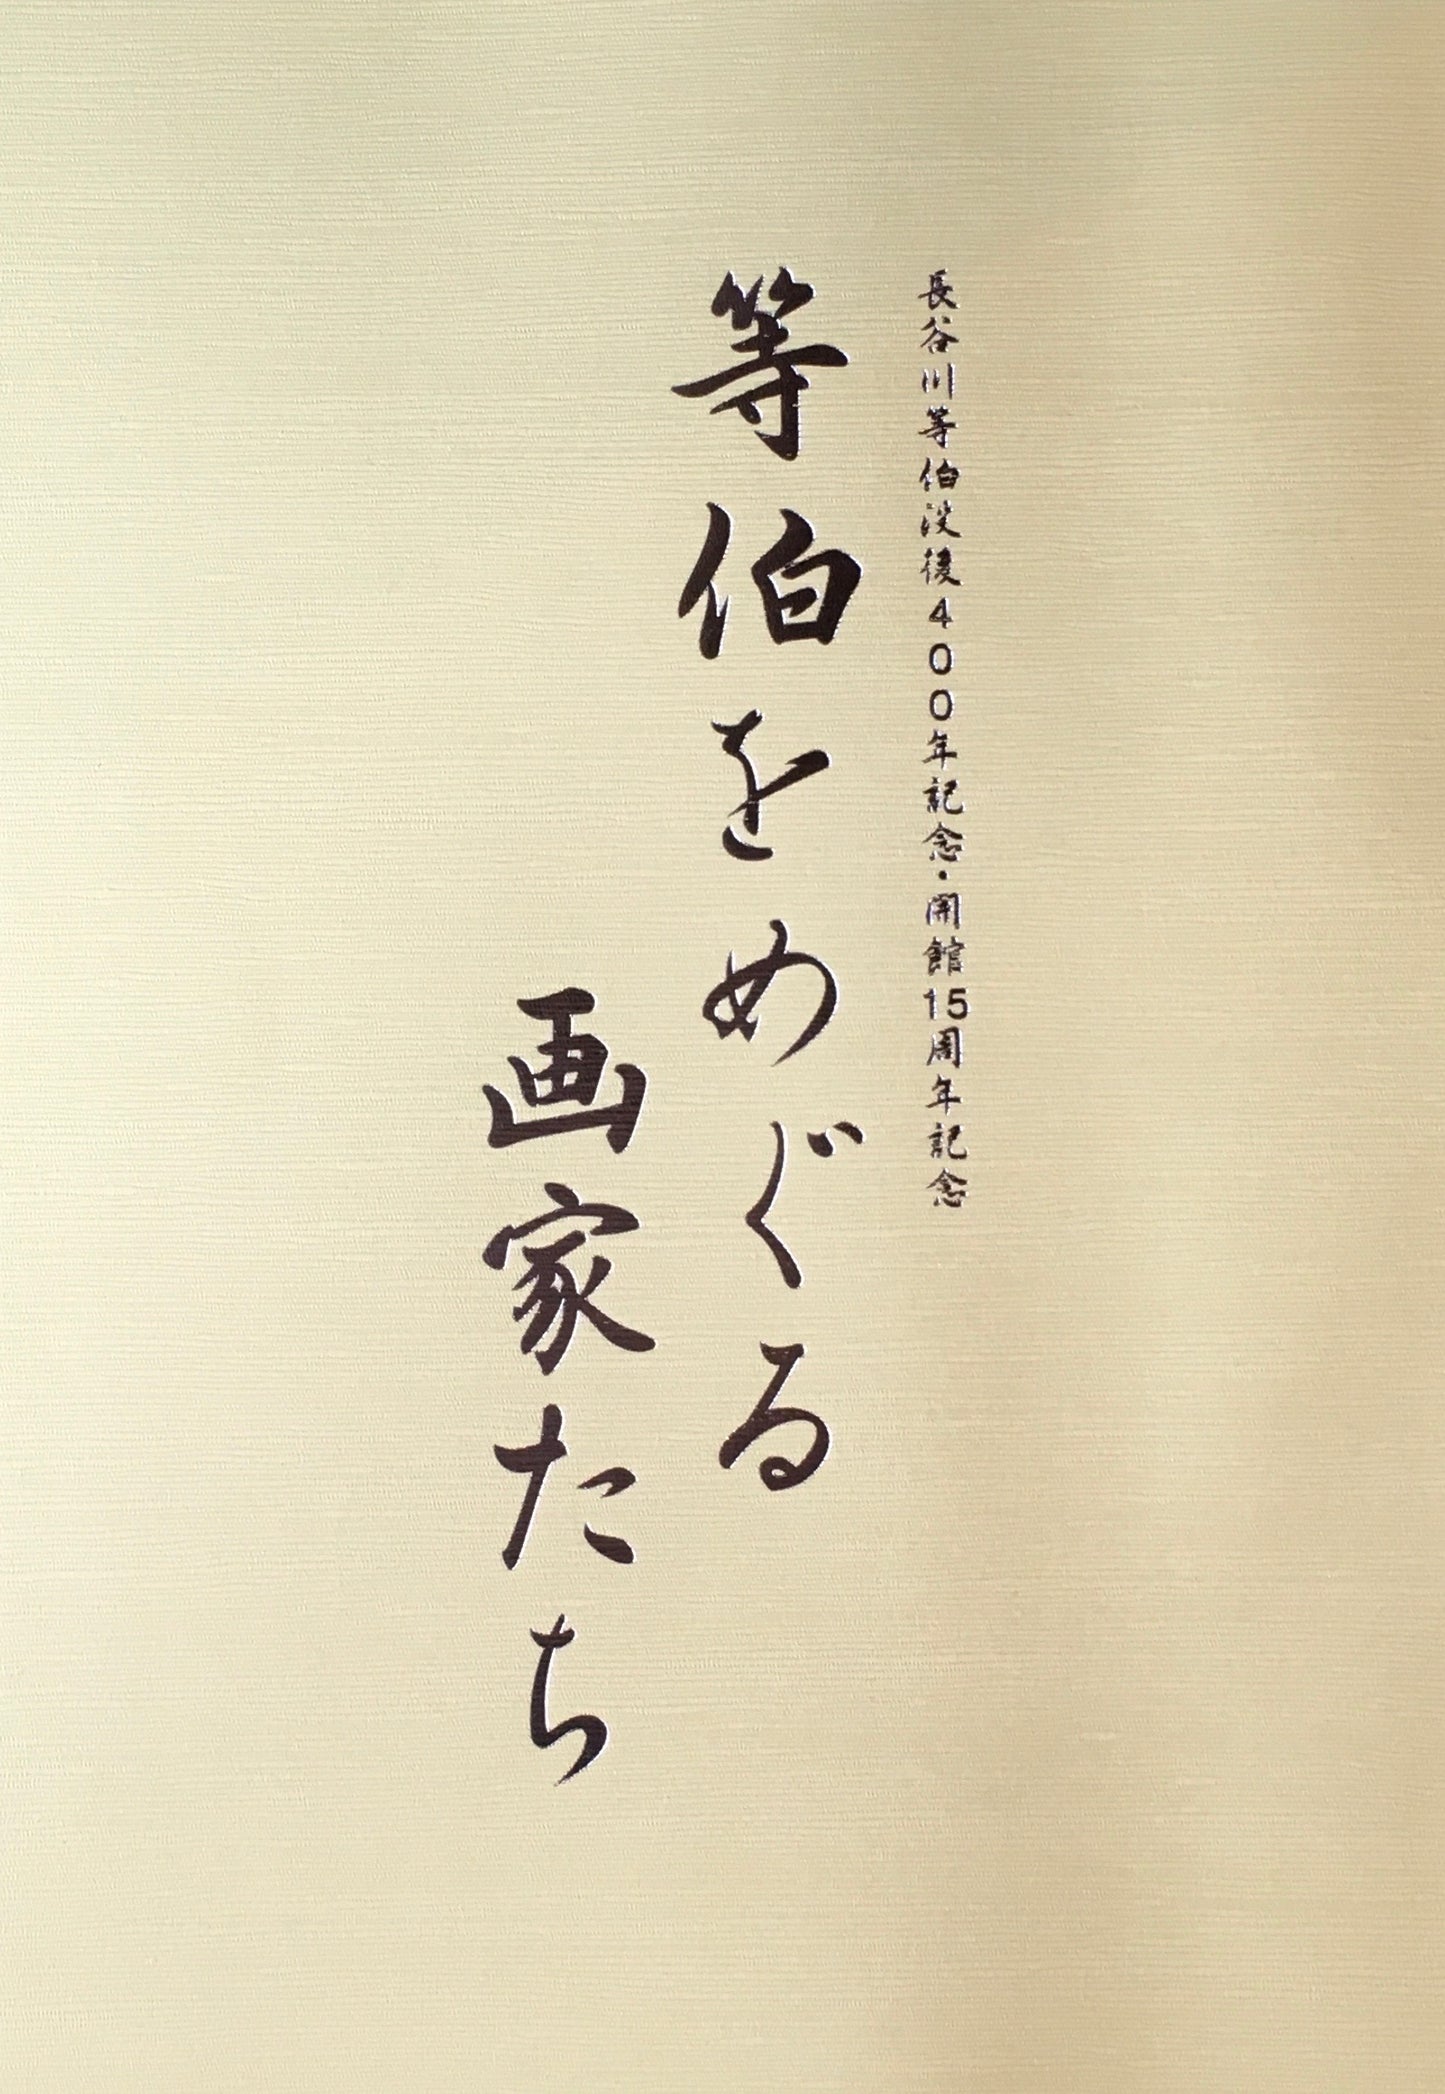 長谷川等伯没後400年記念・開館15周年記念
等伯をめぐる
画家たち